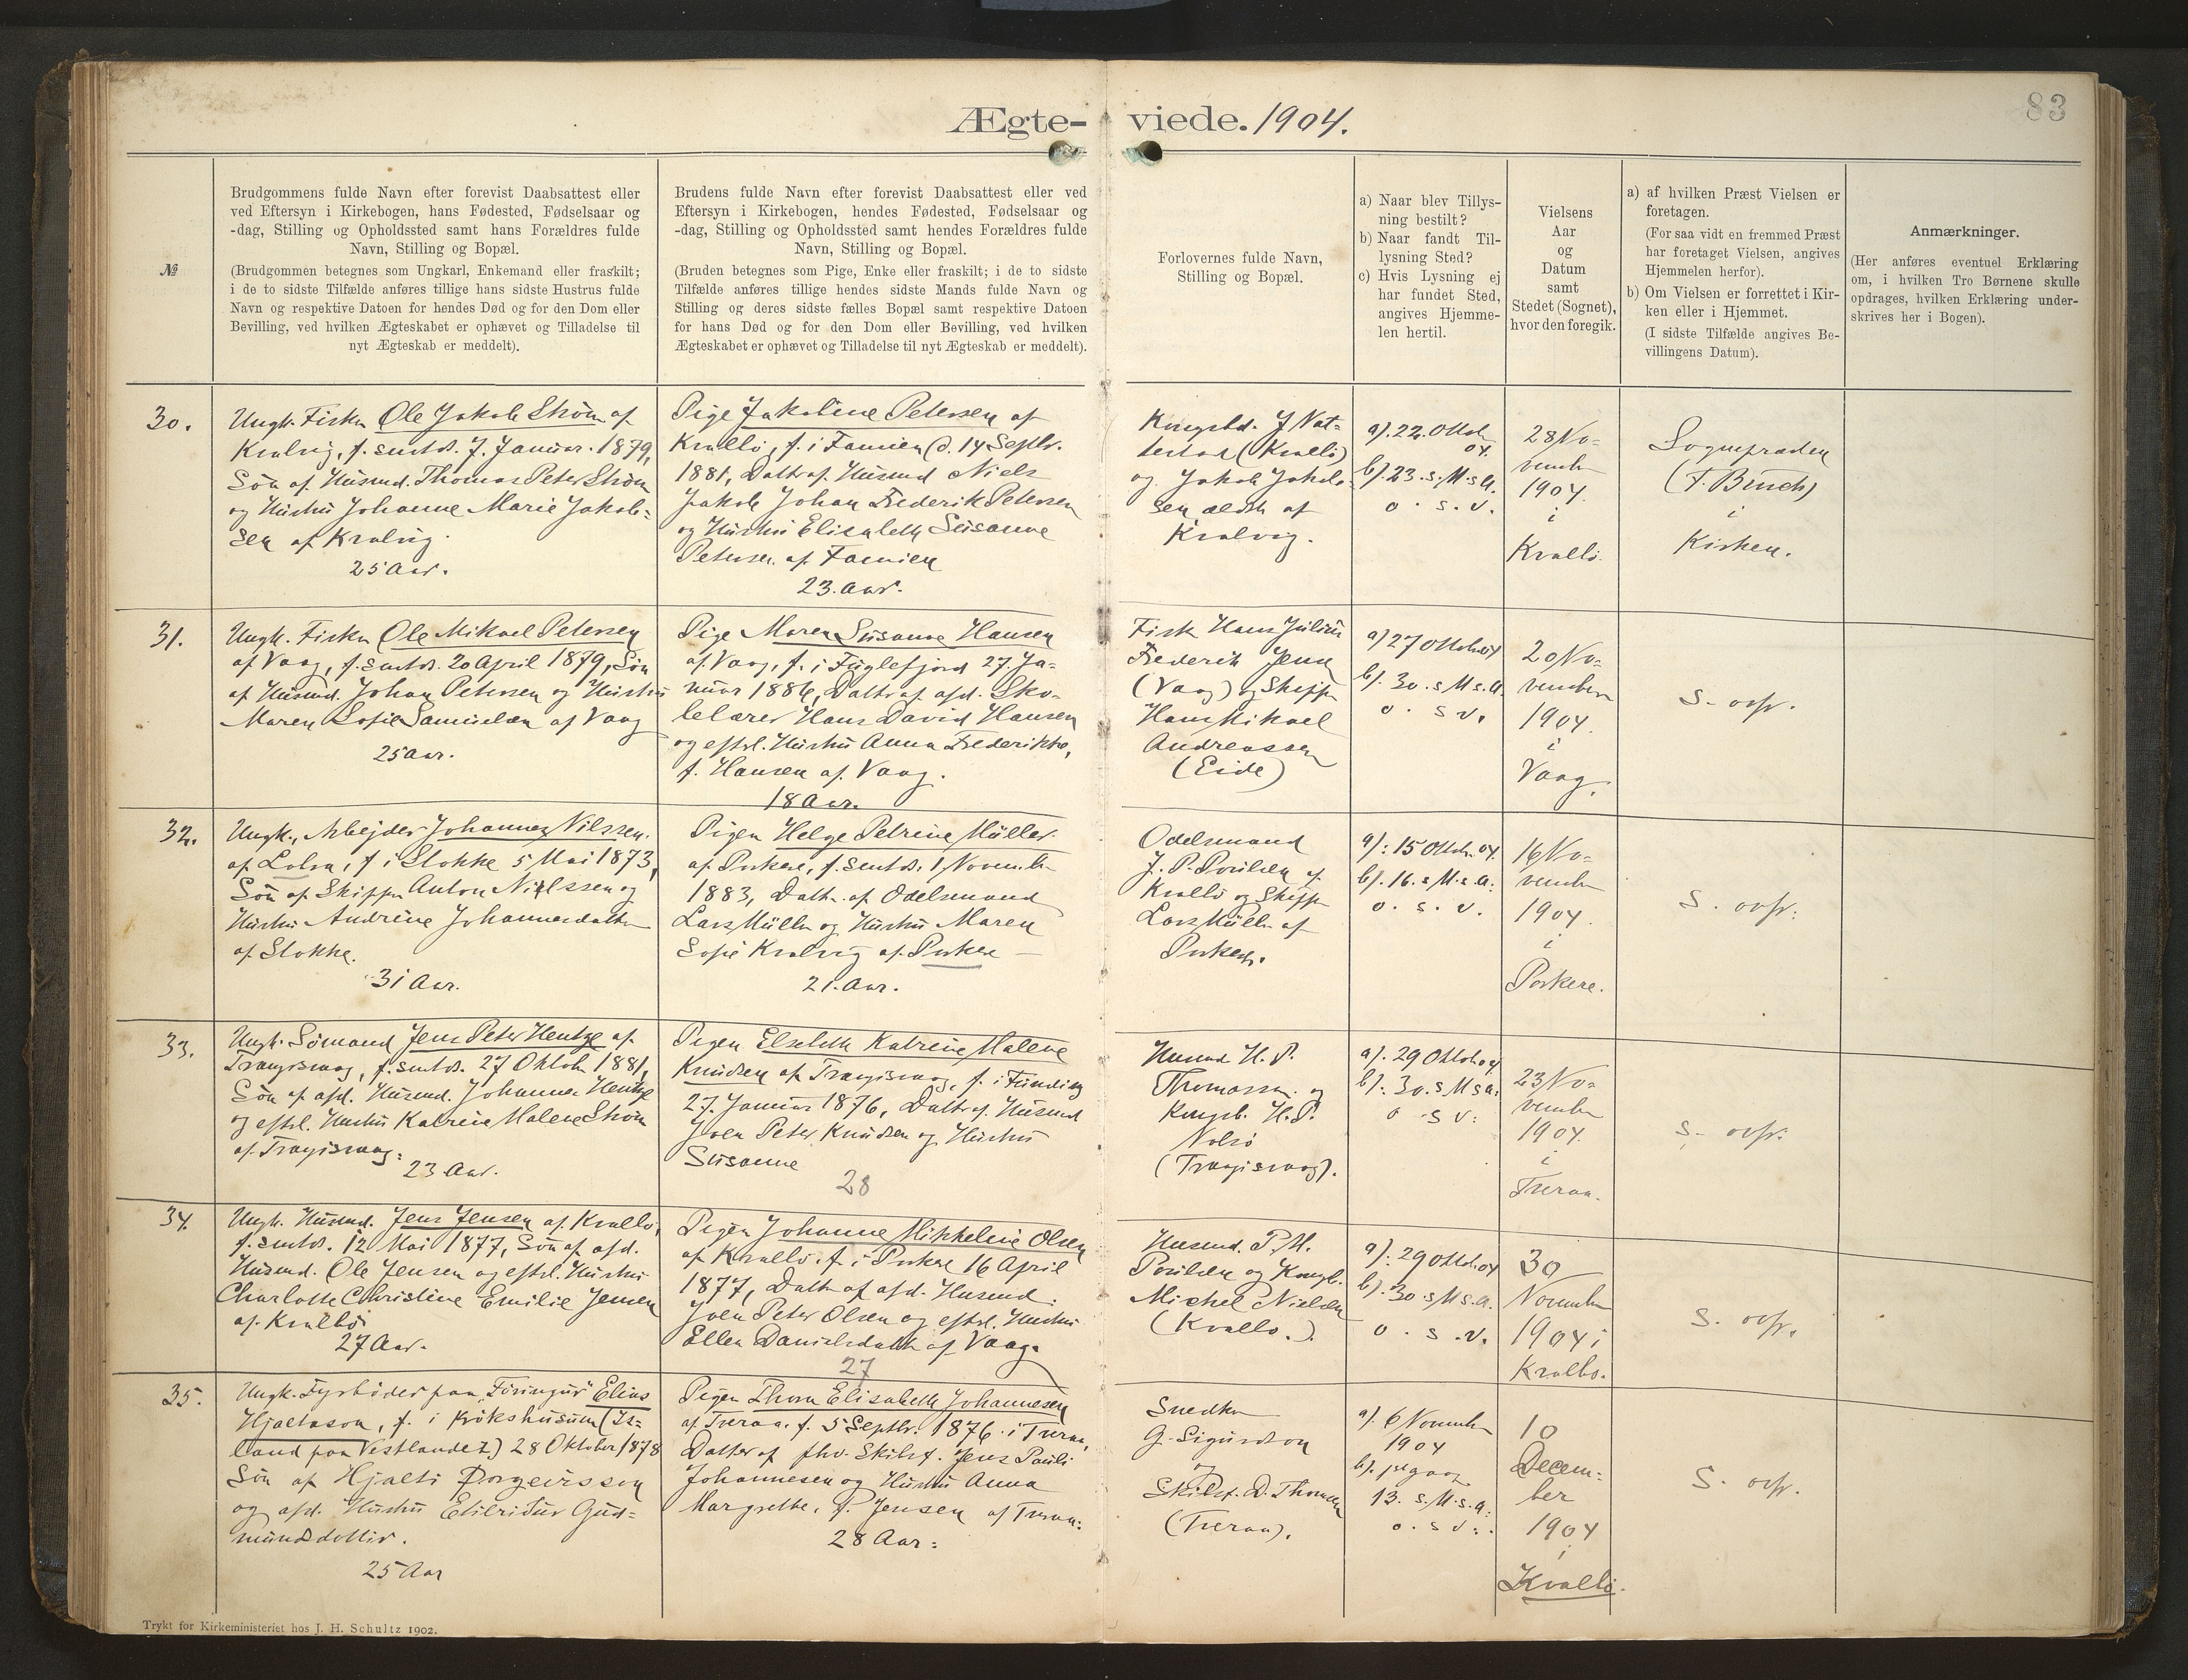 Ægte- viede. 1904.
83
№
Brudgommens fulde Navn efter forevist Daabsattest eller
ved Eftersyn i Kirkebogen, hans Fødested, Fødselsaar og
-dag, Stilling og Opholdssted samt hans Forældres fulde
Navn, Stilling og Bopæl.
(Brudgommen betegnes som Ungkarl, Enkemand eller fraskilt;
i de to sidste Tilfælde anføres tillige hans sidste Hustrus fulde
Navn og respektive Datoen for hendes Død og for den Dom eller
Bevilling, ved hvilken Ægteskabet er ophævet og Tilladelse til
nyt Ægteskab er meddelt).
Brudens fulde Navn efter forevist Daabsattest eller ved
Eftersyn i Kirkebogen, hendes Fødested, Fødselsaar og
-dag, Stilling og Opholdssted samt hendes Forældres fulde
Navn, Stilling og Bopæl.
(Bruden betegnes som Pige, Enke eller fraskilt; i de to sidste
Tilfælde anføres tillige hendes sidste Mands fulde Navn og
Stilling og deres sidste fælles Bopæl samt respektive Datoen
for hans Død og for den Dom eller Bevilling, ved hvilken
Ægteskabet er ophævet og Tilladelse til nyt Ægteskab er meddelt).
Forlovernes fulde Navn,
Stilling og Bopæl.
a) Naar blev Tillys-
ning bestilt?
b) Naar fandt Til-
lysning Sted?
c) Hvis Lysning ej
har fundet Sted,
angives Hjemme-
len hertil.
Vielsens
Aar
og
Datum
samt
Stedet (Sognet),
hvor den foregik.
a) af hvilken Præst Vielsen er
foretagen.
(For saa vidt en fremmed Præst
har foretaget Vielsen, angives
Hjemmelen herfor).
b) Om Vielsen er forrettet i Kir-
ken eller i Hjemmet.
(I sidste Tilfælde angives Be-
villingens Datum).
Anmærkninger.
(Her anføres eventuel Erklæring
om, i hvilken Tro Børnene skulle
opdrages, hvilken Erklæring under-
skrives her i Bogen).
30.
Ungk. Fisker Ole Jakob Strøm af
Kvalvig, f. smtds. 7. Januar. 1879,
Søn af Husmd. Thomas Peter Strøm
og Hustru Johanne Marie Jakob=
sen af Kvalvig.
25 Aar.
Pige Jakobine Petersen af
Kvalbø, f. i Famien d. 14 Septbr.
1881, Dattr af Husmd Niels
Jakob Johan Frederik Petersen
og Hustru Elisabeth Susanne
Petersen af Famien
23. Aar.
Kongsbd. J Nat=
testad (Kvalbø)
og Jakob Jakob-
sen ældste af
Kvalvig.
a). 22. Oktob
04.
b). 23. s. M. s A.
o. s. v.
28 No=
vember
1904.
i
Kvalbø.
Sognepræsten
(F. Bruch)
i
Kirken.
31.
Ungk. Fisker Ole Mikael Petersen
af Vaag, f. smtds. 20 April 1879, Søn
af Husmd. Johan Petersen og Hustru
Maren Sofie Samuelsen af Vaag
25 Aar.
Pige Maren Susanne Hansen
af Vaag, f. i Fuglefjord 27. Ja-
nuar 1886, Dattr af afd. Sko-
lelærer Hans David Hansen
og eftrl. Hustru Anna Frederikke,
f. Hansen af Vaag.
18 Aar.
Fisk Hans Julius
Frederik Jensen
(Vaag) og Skipper
Hans Mikael
Andreassen
(Eide)
a) 27 Oktob 04
b). 30. s M s. A.
o. s v.
20 No=
vember
1904.
i
Vaag.
S. ovfr.
32.
Ungk., Arbejder Johannes Nilssen.
af Lobra, f. i Slokke 5 Mai 1873,
Søn af Skipper Anton Nielssen og
Hustru Andrine Johannesdatter
af Slokke.
31 Aar.
Pigen Helge Petrine Müller.
af Porkere, f. smtds. 1 November
1883, Dattr. af Odelsmand
Lars Müller og Hustru Maren
Sofie Kvalvig af Porkere
21. Aar.
Odelsmand
J. P. Poulsen af
Kvalbø og Skipper
Lars Müller af
Porkere.
a): 15 Oktob. 04.
b). 16. s M. s. A.
o. s. v.
16 No=
vember
1904.
i
Porkere.
S. ovfr.
33.
Ungk. Sømand Jens Peter Hentze af
Trangisvaag, f. smtds. 27 Oktob. 1881,
Søn af afd. Husmd. Johannes Hentze
og eftrl. Hustru Katrine Malene Strøm
af Trangisvaag.
23 Aar.
Pigen Elsebeth Katrine Malene
Knudsen af Trangisvaag, f. i Funding
27. Januar 1876, Dattr af Husmd
Joen Peter Knudsen og Hustru
Susanne
28
Husmd H. P.
Thomassen og
Kongsb. H. P.
Nolsø
(Trangisvaag).
a). 29 Oktob 04
b). 30. s M s A.
o s v.
23 No=
vember
1904.
i
Tveraa.
S. ovfr.
34.
Ungk. Husmd. Jens Jensen af Kvalbø,
f. smtds. 12 Mai 1877, Søn af afd.
Husmd. Ole Jensen og eftrl. Hustru
Charlotte Christine Emilie Jensen
af Kvalbø
27 Aar.
Pigen Johanne Mikkeline Olsen
af Kvalbø. f. i Porkere 16 April
1877, Dattr af afd. Husmd.
Joen Peter Olsen og eftrl. Hustru
Ellen Danielsdatter af Vaag.
27
Husmd. P. M.
Poulsen og Kongsb.
Michel Nielsen
(Kvalbø.).
a). 29 Oktob 04
b). 30. s M s. A.
o. s. v.
30
November
1904 i
Kvalbø.
S. ovfr.
35.
Ungk. Fyrbøder paa "Føringur" Elias
Hjaltason, f. i Krókshúsum (Is=
land paa Vestlandet) 28 Oktober 1878
Søn af Hjalti Þorgeirsson
og afd. Hustru Etilriður Guð=
mundsdottir.
25 Aar
Pigen Thora Elisabeth Johannesen
af Tveraa. f. 5 Septbr. 1876. i Tveraa,
Datter af fhv. Skibsf. Jens Pauli
Johannesen og Hustru Anna
Margrethe, f. Jensen af Tveraa.
28 Aar.
Snedker
G. Sigurdson
og
Skibsf. D. Thomsen
(Tveraa).
a). 6 November
1904
13. s. M. s. A.
o. s v.
10
Decem=
ber
1904
i
Kvalbø.
S. ovfr.
Trykt for Kirkeministeriet hos J. H. Schultz 1902.